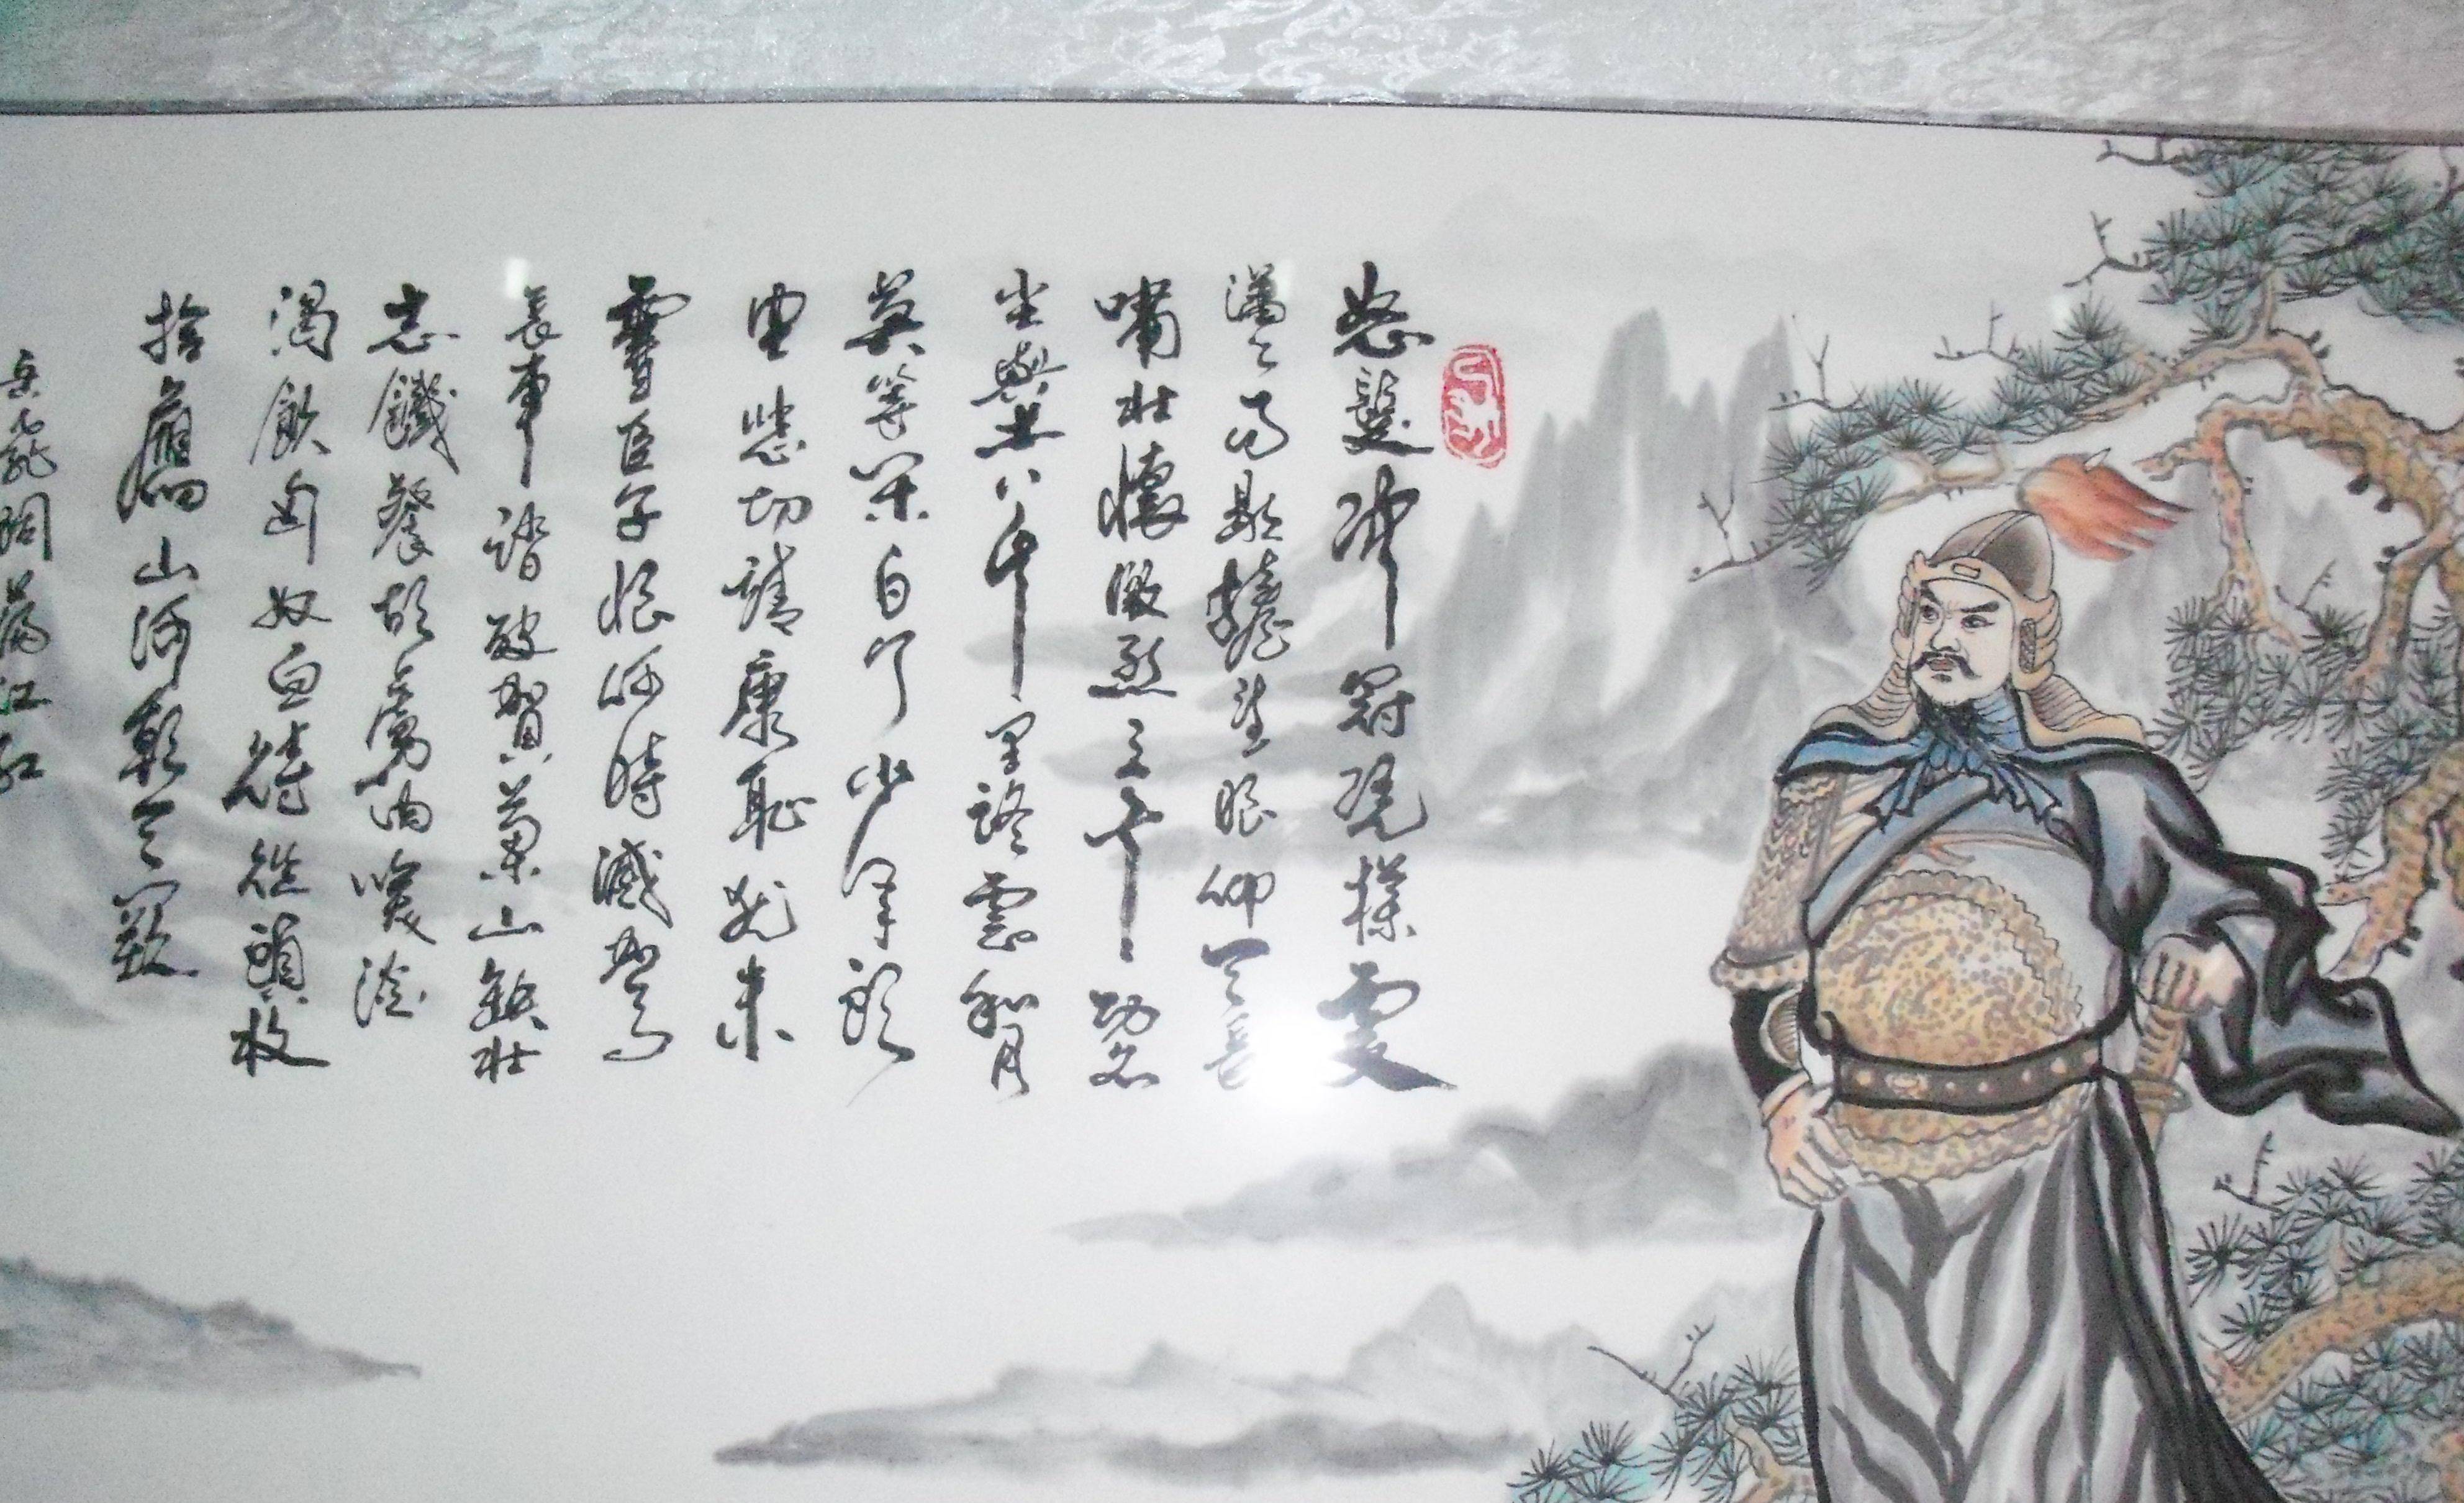 怒髮冲冠凭欄處
瀟〻雨歇擡望眼仰天長
嘯壯懷激烈三十功名
塵與土八千里路雲和月
莫等閑白了少年頭
空悲切靖康恥猶未
雪臣子恨何時滅駕
長車踏破賀蘭山缺壯
志饑餐胡虜肉笑談
渴飲匈奴血待從頭收
拾舊山河朝天闕
岳飛詞滿江紅